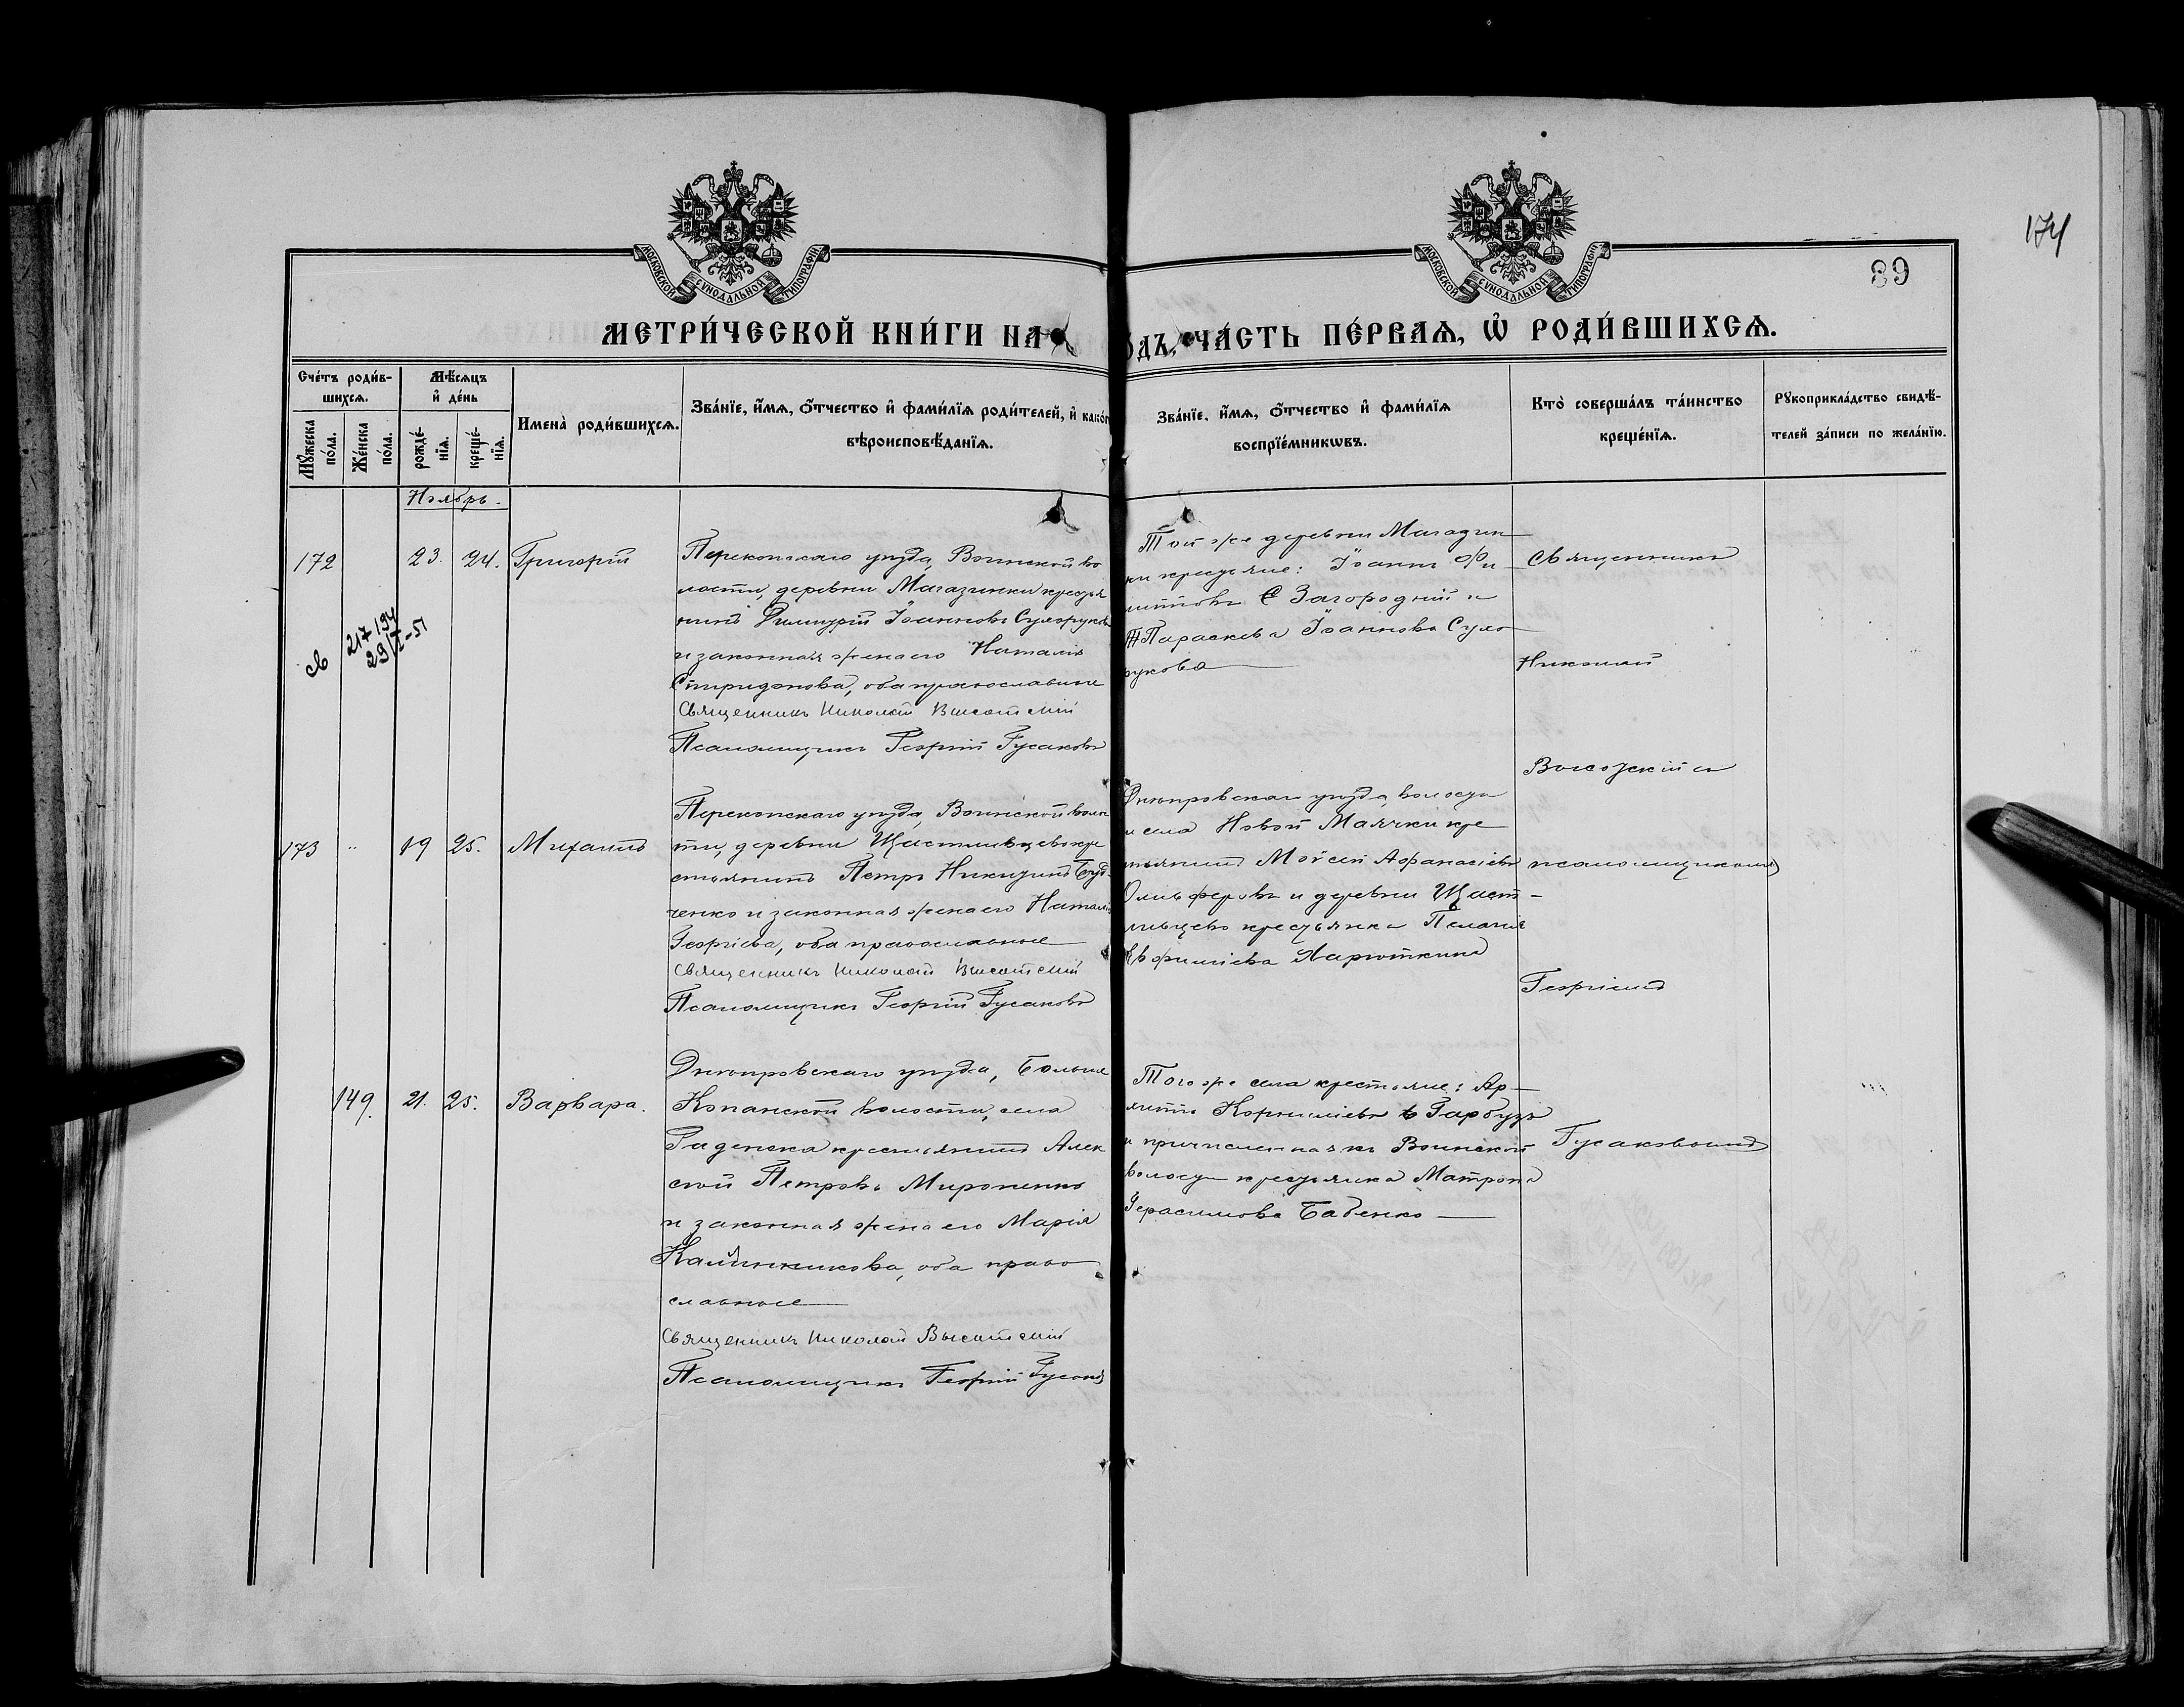 174
89
МОСКОВСКОЙ СѴНОДАЛЬНОЙ ТИПОГРАФІИ
МОСКОВСКОЙ СѴНОДАЛЬНОЙ ТИПОГРАФІИ
МЕТРИ́ЧЕСКОЙ КНИ́ГИ НА
ОДЪ, ЧА́СТЬ ПЕ́РВАѦ, Ѡ҆ РОДИ́ВШИХСѦ.
Сче́тъ роди́в-
шихсѧ.
Мꙋ́жеска по́ла.
Же́нска по́ла.
Мѣ́сѧцъ
и҆ де́нь
рожде́-
нїѧ.
креще́-
нїѧ.
Имена̀ роди́вшихсѧ.
Зва́нїе, и҆́мѧ, ѻ҆́тчество и҆ фами́лїѧ роди́телей, и҆ како́г
вѣроисповѣ́данїѧ.
Зва́нїе, и҆́мѧ, ѻ҆́тчество и҆ фами́лїѧ
воспрїе́мникѡвъ.
Кто̀ соверша́лъ та́инство
креще́нїѧ.
Рꙋкоприкла́дство свидѣ́-
телей за́писи по жела́нїю.
Ноябрь.
172
23. 24. Григорій
св
217 194
Перекопскаго уѣзда, Воинской во
лости, деревни Магазинки крестья
нинъ Димитрій Іоанновъ Сухоруковъ
и законная жена его Наталія
Спиридонова, оба православные
Священникъ Николай Высотскій
Псаломщикъ Георгій Гусаковъ
Той же деревни Магазин
ки крестьяне: Іоаннъ Фи
липповъ Загородній и
Параскева Іоаннова Сухо
рукова
173 " 19 25. Михаилъ
Перекопскаго уѣзда, Воинской волос
ти, деревни Щастливцево кре
стьянинъ Петръ Никитинъ
ченко и законная жена его Наталія
Георгіева, оба православные
Священникъ Николай Высотскій
Псаломщикъ Георгій Гусаковъ
Днѣпровскаго уѣзда, волости
и села Новой Маячки кре
стьянинъ Мойсей Афанасіевъ
Олиферовъ и деревни Щаст-
ливцево крестьянка Пелагія
Евфиміева Ларюткина
149. 21. 25. Варвара.
Днѣпровскаго уѣзда, Больше
Копанской волости, села
Раденска крестьянинъ Алек
сѣй Петровъ Мироненко
и законная жена его Марія
Каллиникова, оба право
славные
Священникъ Николай Высотскій
Псаломщикъ Георгій Гусаковъ
Того же села крестьяне:
Корниліевъ Гарбузъ
и причисленная къ Воинской
волости крестьянка Матрона
Герасимова Бабенко
Священникъ
Николай
Высотскій съ
псаломщикомъ
Георгіемъ
Гусаковымъ